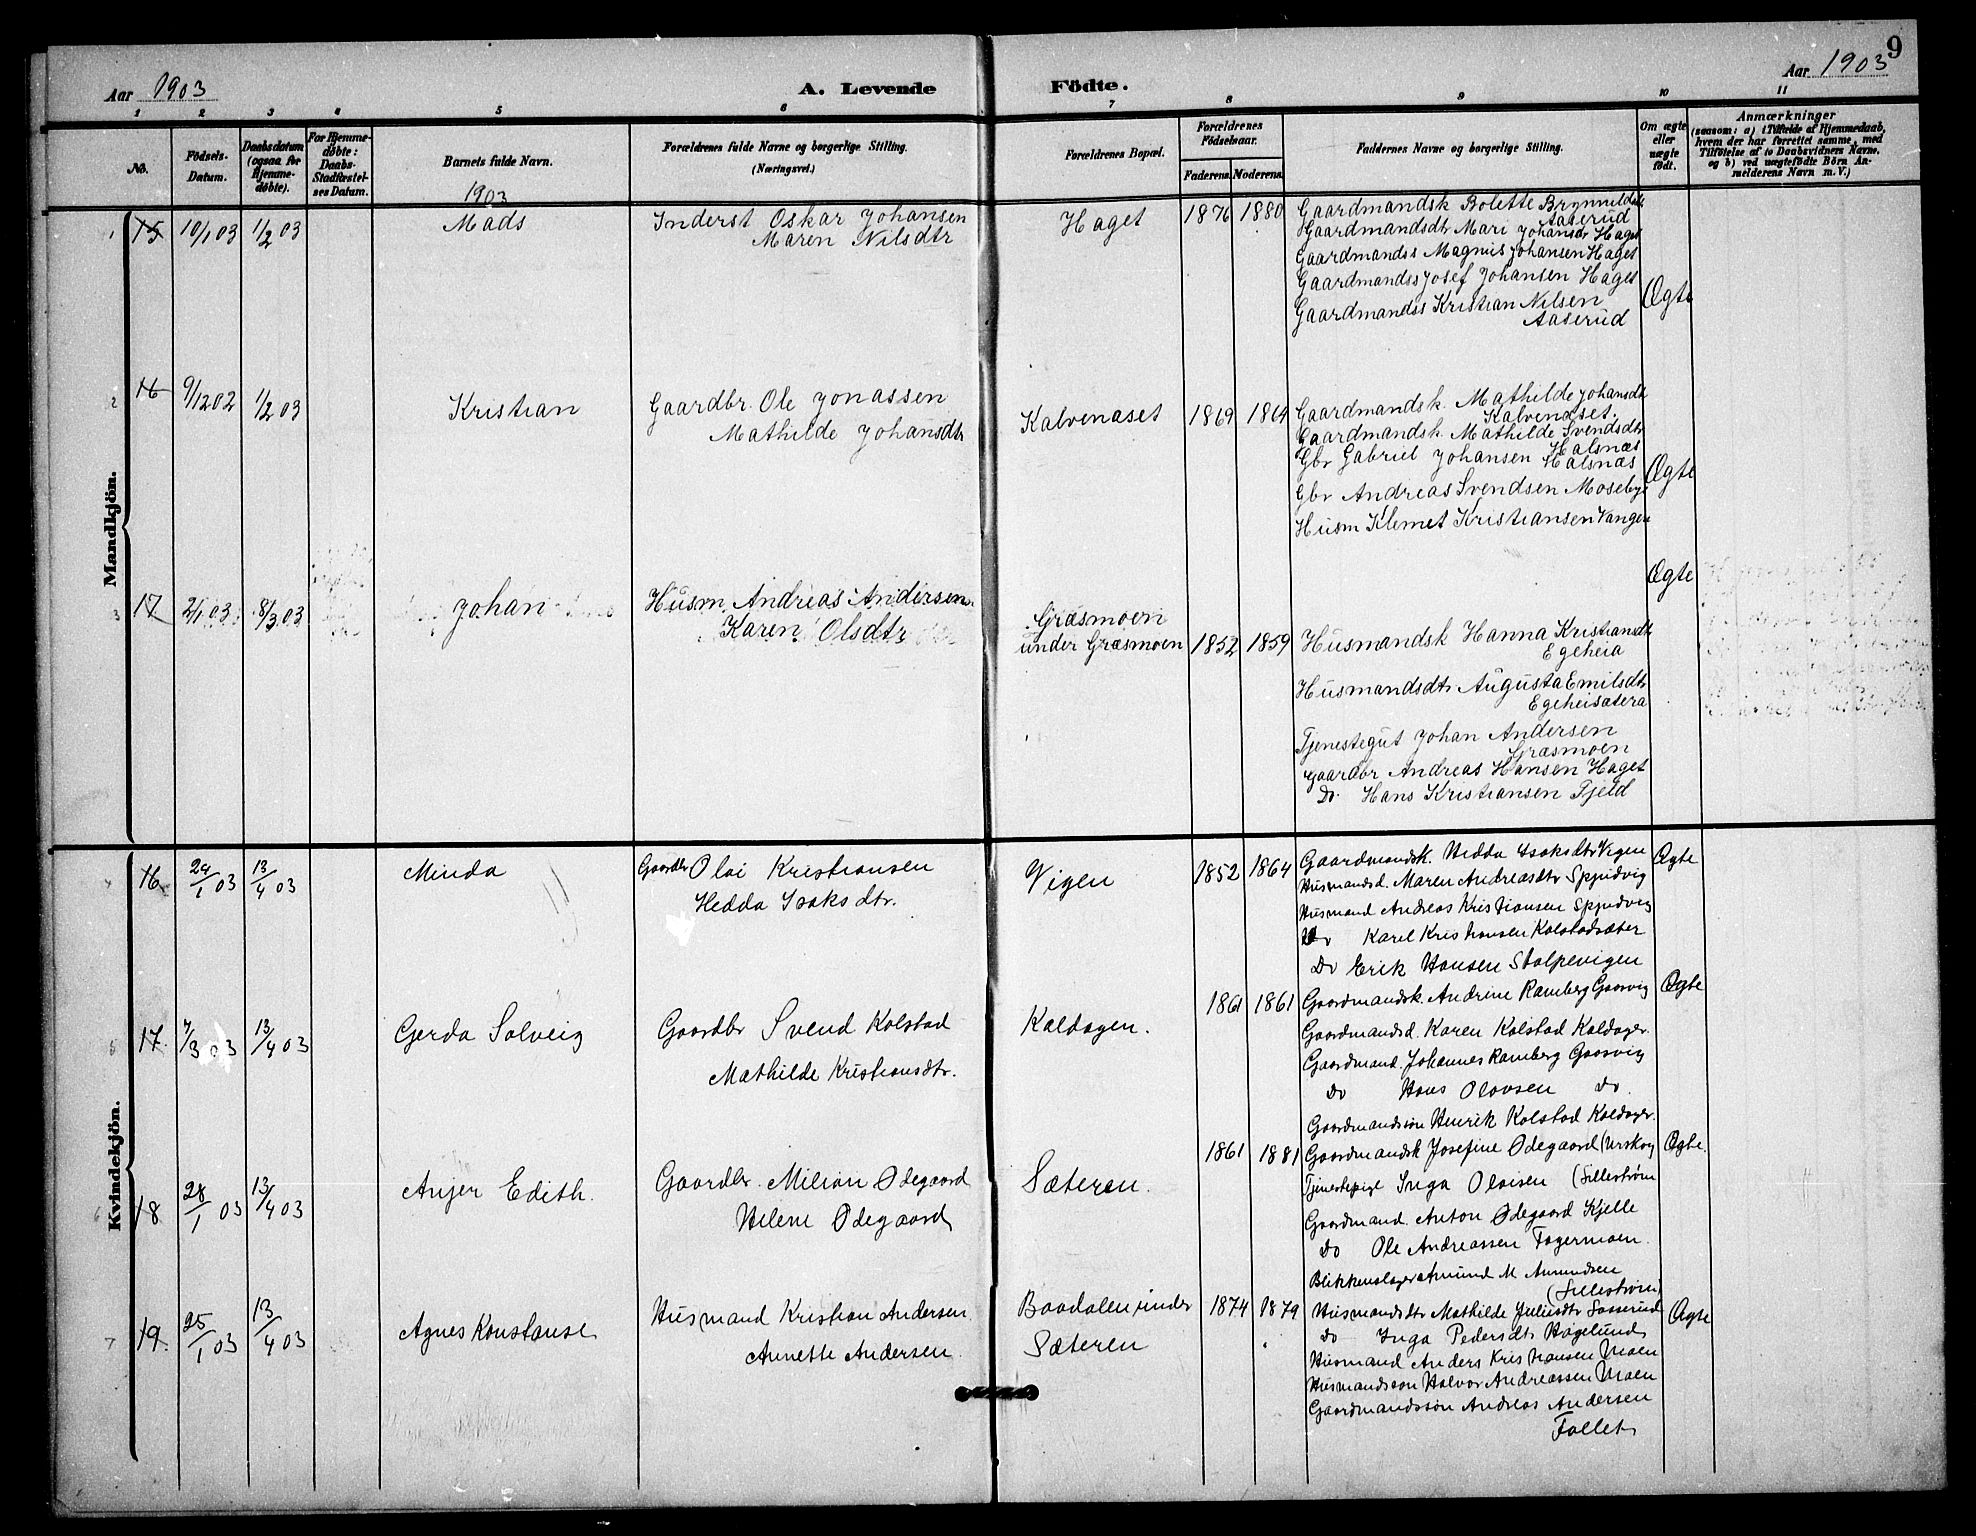 9
Aar 1903
A. Levende Födte.
Aar 1903
1 2 3 4 5 6 7 8 9 10 11
No.
Födsels-Datum.
Daabsdatum (ogsaa for Hjemme-døbte).
For Hjemme-døbte: Daabs-Stadfæstel-ses Datum.
Barnets fulde Navn.
Forældrenes fulde Navne og borgerlige Stilling.
(Næringsvei.)
Forældrenes Bopæl.
Forældrenes Födselsaar.
Faderens. Moderens.
Faddernes Navne og borgerlige Stilling.
Om ægte eller uægte födt.
Anmærkninger
(saasom: a) i Tilfælde af Hjemmedaab, hvem der har forrettet samme, med Tilföielse af to Daabsvidners Navne, og b) ved uægtefödte Börn An-melderens Navn m.V.)
1903
Mandkjön.
1 15 10/1 03 1/2 03 Mads
Inderst Oskar Johansen
Maren Nilsdtr
Haget 1876 1880
Gaardmandsk Bolette Brynnildsdtr
Aaserud
Gaardmandsdtr Mari Johansdtr Haget
Gaardmandss Magnus Johansen Haget
Gaardmandss Josef Johansen Haget
Gaardmandss Kristian Nilsen
Aaserud
Ægte
2 16 9/12 02 1/2 03 Kristian
Gaardbr. Ole Jonassen
Mathilde Johansdtr
Kalvenæset 1869 1864
Gaardmandsk. Mathilde Johansdtr
Kalvenæset.
Gaardmandsk. Mathilde Svendsdtr
Halsnæs
Gbr Gabriel Johansen Halsnæs
Gbr Andreas Svendsen Moseby
Husm Klemet Kristiansen Vangen
Ægte
3 17 2/1 03 8/3 03 Johan
Husm. Andreas Andersen
Karen Olsdtr
Græsmoen
under Græsmoen 1852 1859
Husmandsk Hanna Kristiansdtr
Egeheia
Husmandsdtr Augusta Emilsdtr
Egeheisætera
Tjenestegut Johan Andersen
Græsmoen
Gaardbr Andreas Hansen Haget
Do Hans Kristiansen Fjeld
Ægte
Kvindekjön.
4 16 29/1 03 13/4 03 Minda
Gaardbr Olai Kristiansen
Hedda Isaksdtr.
Vigen 1852 1864
Gaardmandsk. Hedda Isaksdtr Vigen
Husmandsd. Maren Andreasdtr Spjudvig
Husmand Andreas Kristiansen Spjudvig
Do Karel Kristiansen Kolstadsæter
Do Erik Hansen Stolpevigen
Ægte
5 17 7/3 03 13/4 03 Gerda Solveig
Gaardbr Svend Kolstad
Mathilde Kristiansdtr.
Kaldagen. 1861 1861
Gaardmandsk. Andrine Ramberg Gaasvig
Gaardmandsd. Karen Kolstad Kaldager.
Gaardmand. Johannes Ramberg Gaasvig
Do Hans Olavsen Do.
Gaardmandssøn Henrik Kolstad Kaldager.
Ægte
6 18 28/1 03 13/4 03 Anjer Edith.
Gaardbr. Milian Ødegaard
Helene Ødegaard
Sæteren. 1861 1881
Gaardmandsk Josefine Ødegaard (Urskog
Tjenestepige Inga Olaisen (Lillestrøm
Gaardmand. Anton Ødegaard Kjelle
Do Ole Andreassen Fagermoen.
Blikkenslager Amund M Amundsen
(Lillestrøm)
Ægte.
7 19 25/1 03 13/4 03 Agnes Konstanse
Husmand Kristian Andersen
Annette Andersen.
Baadalen under
Sæteren 1874 1879
Husmandsdtr Mathilde Juliusdtr Saserud
Do Inga Pedersdtr Høgelund
Husmand Anders Kristiansen Moen
Husmandssøn Halvor Andreassen Moen
Gaardmandssøn Andreas Andersen
Fallet
Ægte